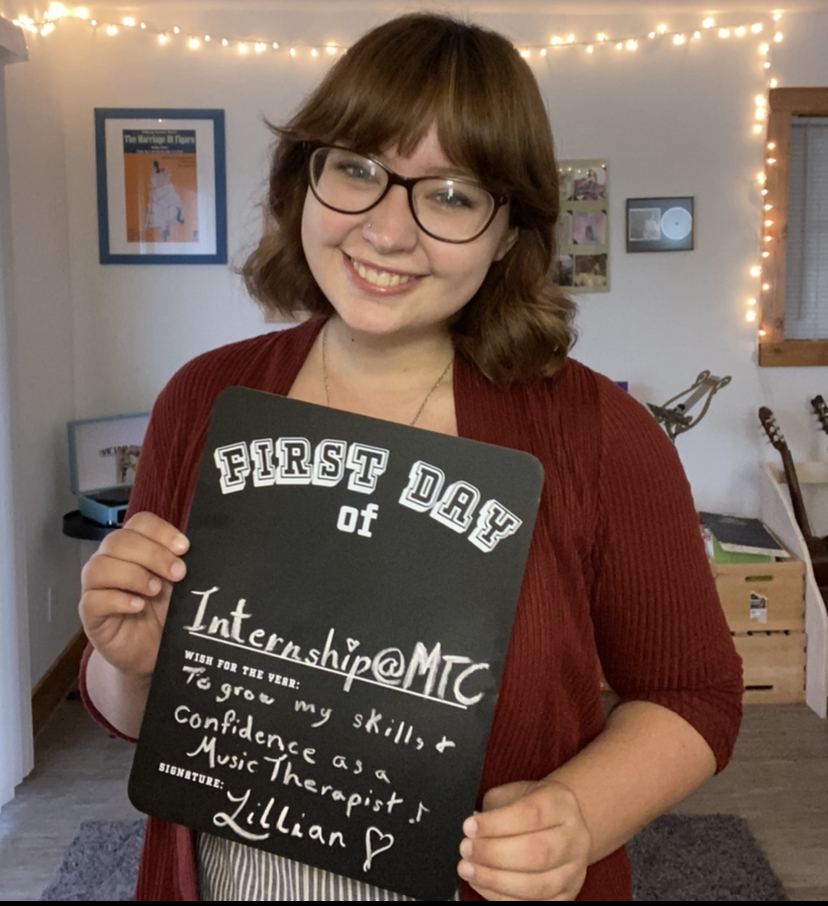 The Marriage Of Figaro
FIRST DAY
of
Internship@MTC
WISH FOR THE YEAR:
To grow my skills &
confidence as a
Music Therapist!
SIGNATURE:
Lillian